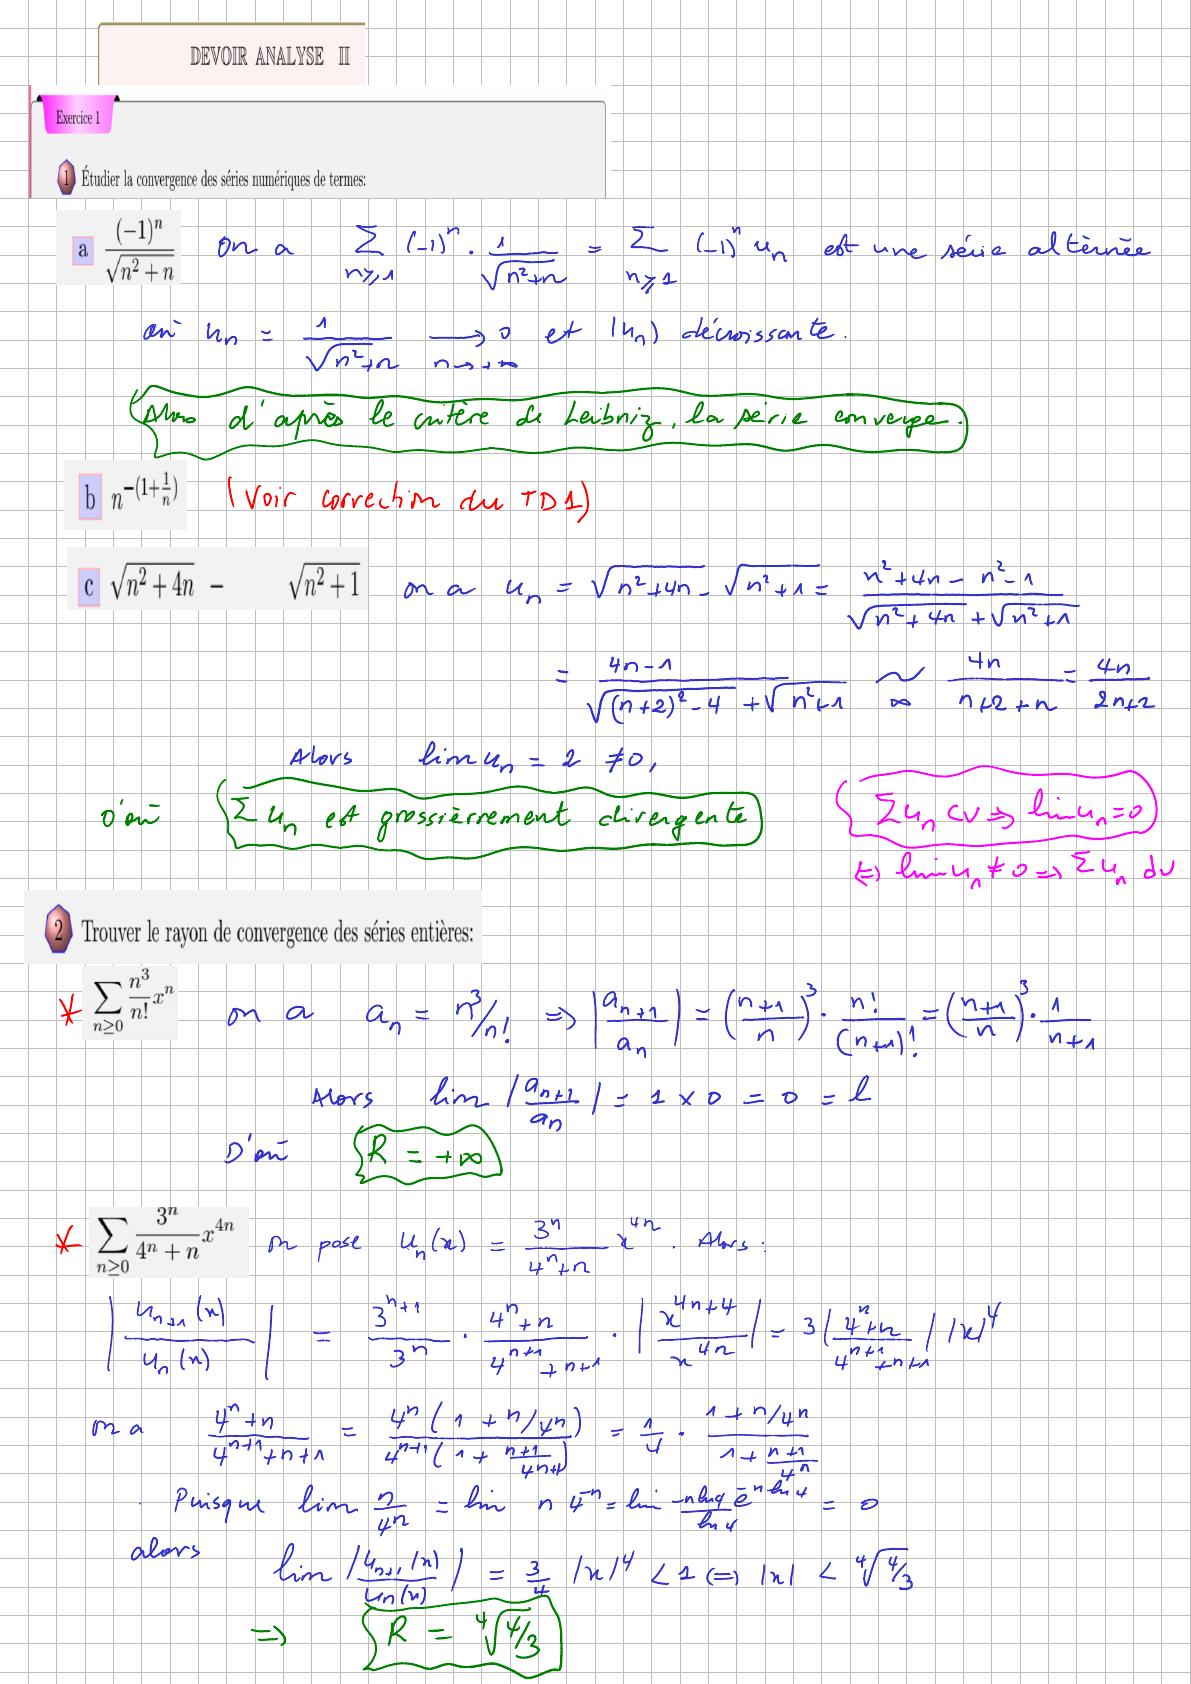 DEVOIR ANALYSE II
Exercice 1
1 Étudier la convergence des séries numériques de termes:
a (-1)^n / √(n²+n) on a Σ_{n≥1} (-1)^n · 1/√(n²+n) = Σ_{n≥1} (-1)^n u_n est une série altèrnée
où u_n = 1/√(n²+n) ⟶_{n→+∞} 0 et (u_n) décroissante.
Alors d'après le critère de Leibniz, la série converge.
b n^{-(1+1/n)} (Voir correction du TD1)
c √(n²+4n) - √(n²+1) on a u_n = √(n²+4n) - √(n²+1) = (n²+4n-n²-1) / (√(n²+4n) + √(n²+1))
= (4n-1) / (√((n+2)²-4) + √(n²+1)) ~_∞ 4n/(n+2+n) = 4n/(2n+2)
Alors lim u_n = 2 ≠ 0,
D'où Σ u_n est grossièrrement divergente
Σ u_n CV ⇒ lim u_n = 0
⇔ lim u_n ≠ 0 ⇒ Σ u_n dv
2 Trouver le rayon de convergence des séries entières:
* Σ_{n≥0} n³/n! x^n on a a_n = n³/n! ⇒ |a_{n+1}/a_n| = ((n+1)/n)³ · n!/(n+1)! = ((n+1)/n)³ · 1/(n+1)
Alors lim |a_{n+1}/a_n| = 1 × 0 = 0 = l
D'où R = +∞
* Σ_{n≥0} 3^n/(4^n+n) x^{4n} on pose u_n(x) = 3^n/(4^n+n) x^{4n}. Alors:
|u_{n+1}(x)/u_n(x)| = 3^{n+1}/3^n · (4^n+n)/(4^{n+1}+n+1) · |x^{4n+4}/x^{4n}| = 3 |(4^n+n)/(4^{n+1}+n+1)| |x|^4
on a (4^n+n)/(4^{n+1}+n+1) = 4^n(1+n/4^n) / 4^{n+1}(1+(n+1)/4^{n+1}) = 1/4 · (1+n/4^n)/(1+(n+1)/4^n)
. Puisque lim n/4^n = lim n 4^{-n} = lim -n ln4/ln4 e^{-n ln 4} = 0
alors lim |u_{n+1}(x)/u_n(x)| = 3/4 |x|^4 < 1 ⇔ |x| < ⁴√(4/3)
⇒ R = ⁴√(4/3)